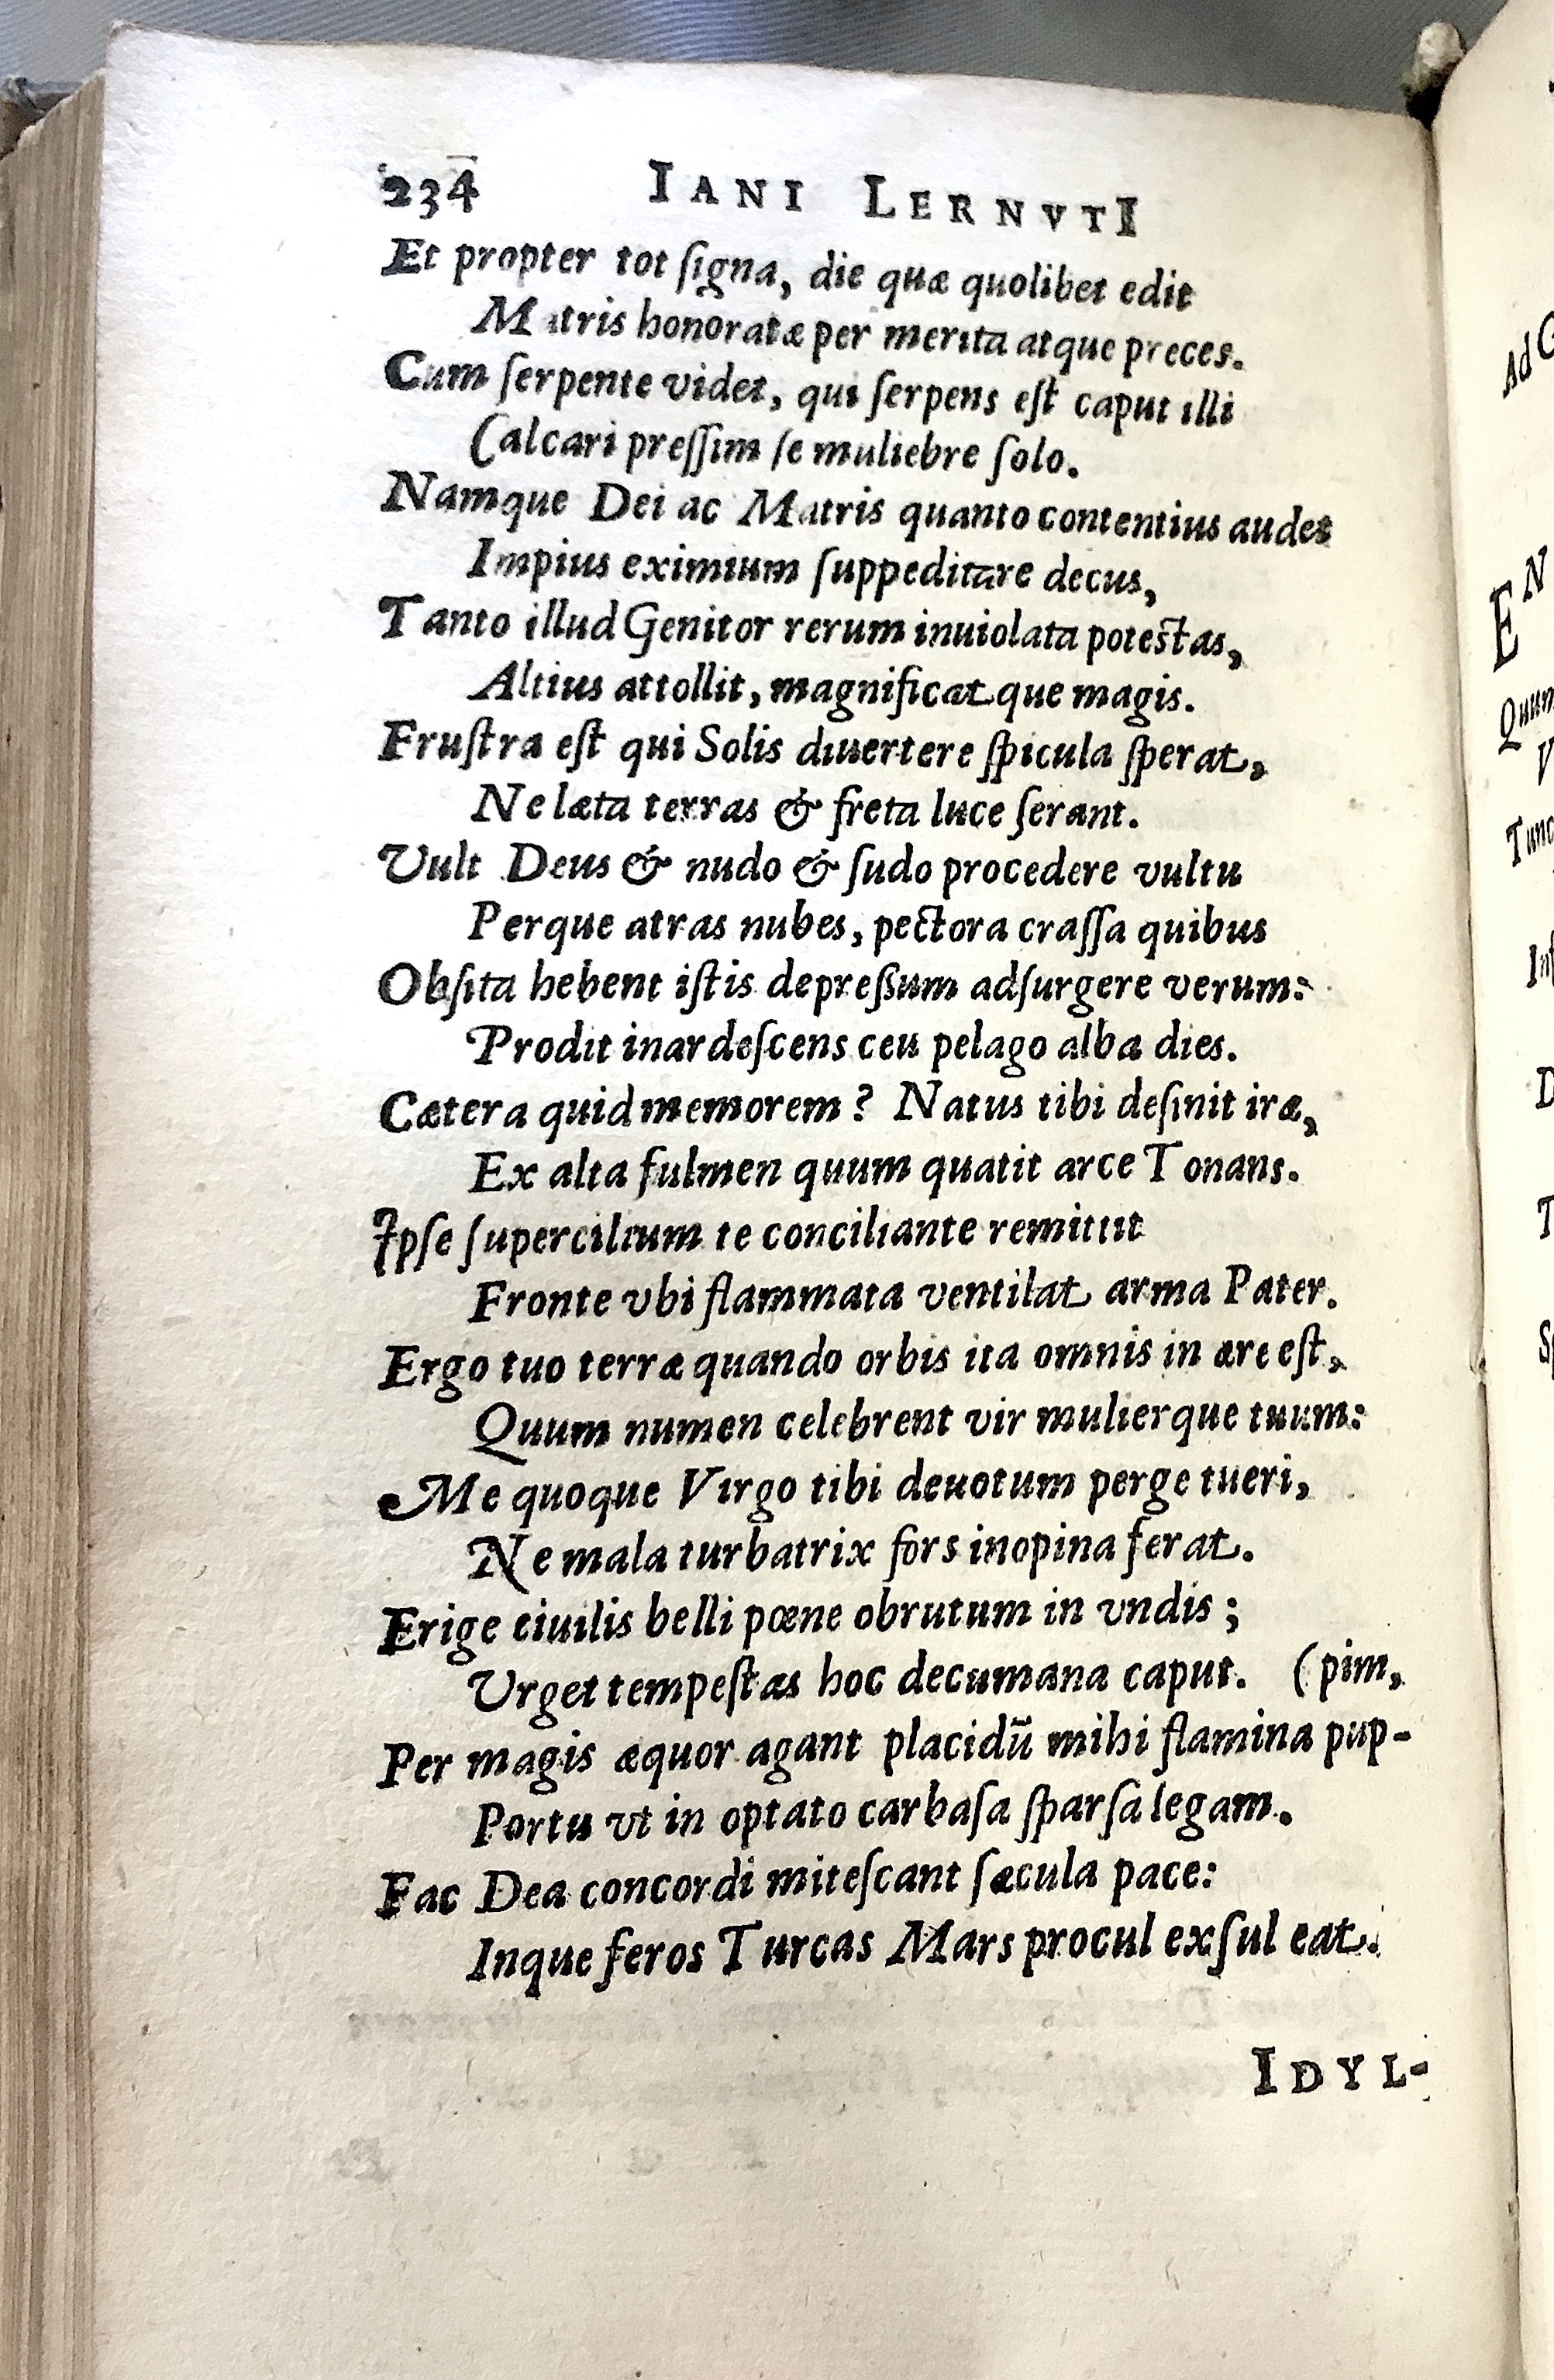 234 IANI LERNVTI
Et propter tot ſigna, die quæ quolibet edit
Matris honoratæ per merita atque preces.
Cum ſerpente videt, qui ſerpens eſt caput illi
Calcari preſſim ſe muliebre ſolo.
Namque Dei ac Matris quanto contentius audet
Impius eximium ſuppeditare decus,
Tanto illud Genitor rerum inuiolata poteſtas,
Altius attollit, magnificatque magis.
Fruſtra eſt qui Solis diuertere ſpicula ſperat,
Ne læta terras & freta luce ſerant.
Vult Deus & nudo & ſudo procedere vultu
Perque atras nubes, pectora craſſa quibus
Obſita hebent iſtis depreſſum adſurgere verum:
Prodit inardeſcens ceu pelago alba dies.
Cætera quid memorem? Natus tibi deſinit iræ,
Ex alta fulmen quum quatit arce Tonans.
Ipſe ſupercilium te conciliante remittit
Fronte vbi flammata ventilat arma Pater.
Ergo tuo terræ quando orbis ita omnis in ære eſt,
Quum numen celebrent vir mulierque tuum:
Me quoque Virgo tibi deuotum perge tueri,
Ne mala turbatrix fors inopina ferat.
Erige ciuilis belli pœne obrutum in vndis;
Urget tempeſtas hoc decumana caput. (pim,
Per magis æquor agant placidū mihi flamina pup-
Portu vt in optato carbaſa ſparſa legam.
Fac Dea concordi miteſcant ſæcula pace:
Inque feros Turcas Mars procul exſul eat.
IDYL-
Ad
EN
Quum
V
Tunc
Inſ
D
T